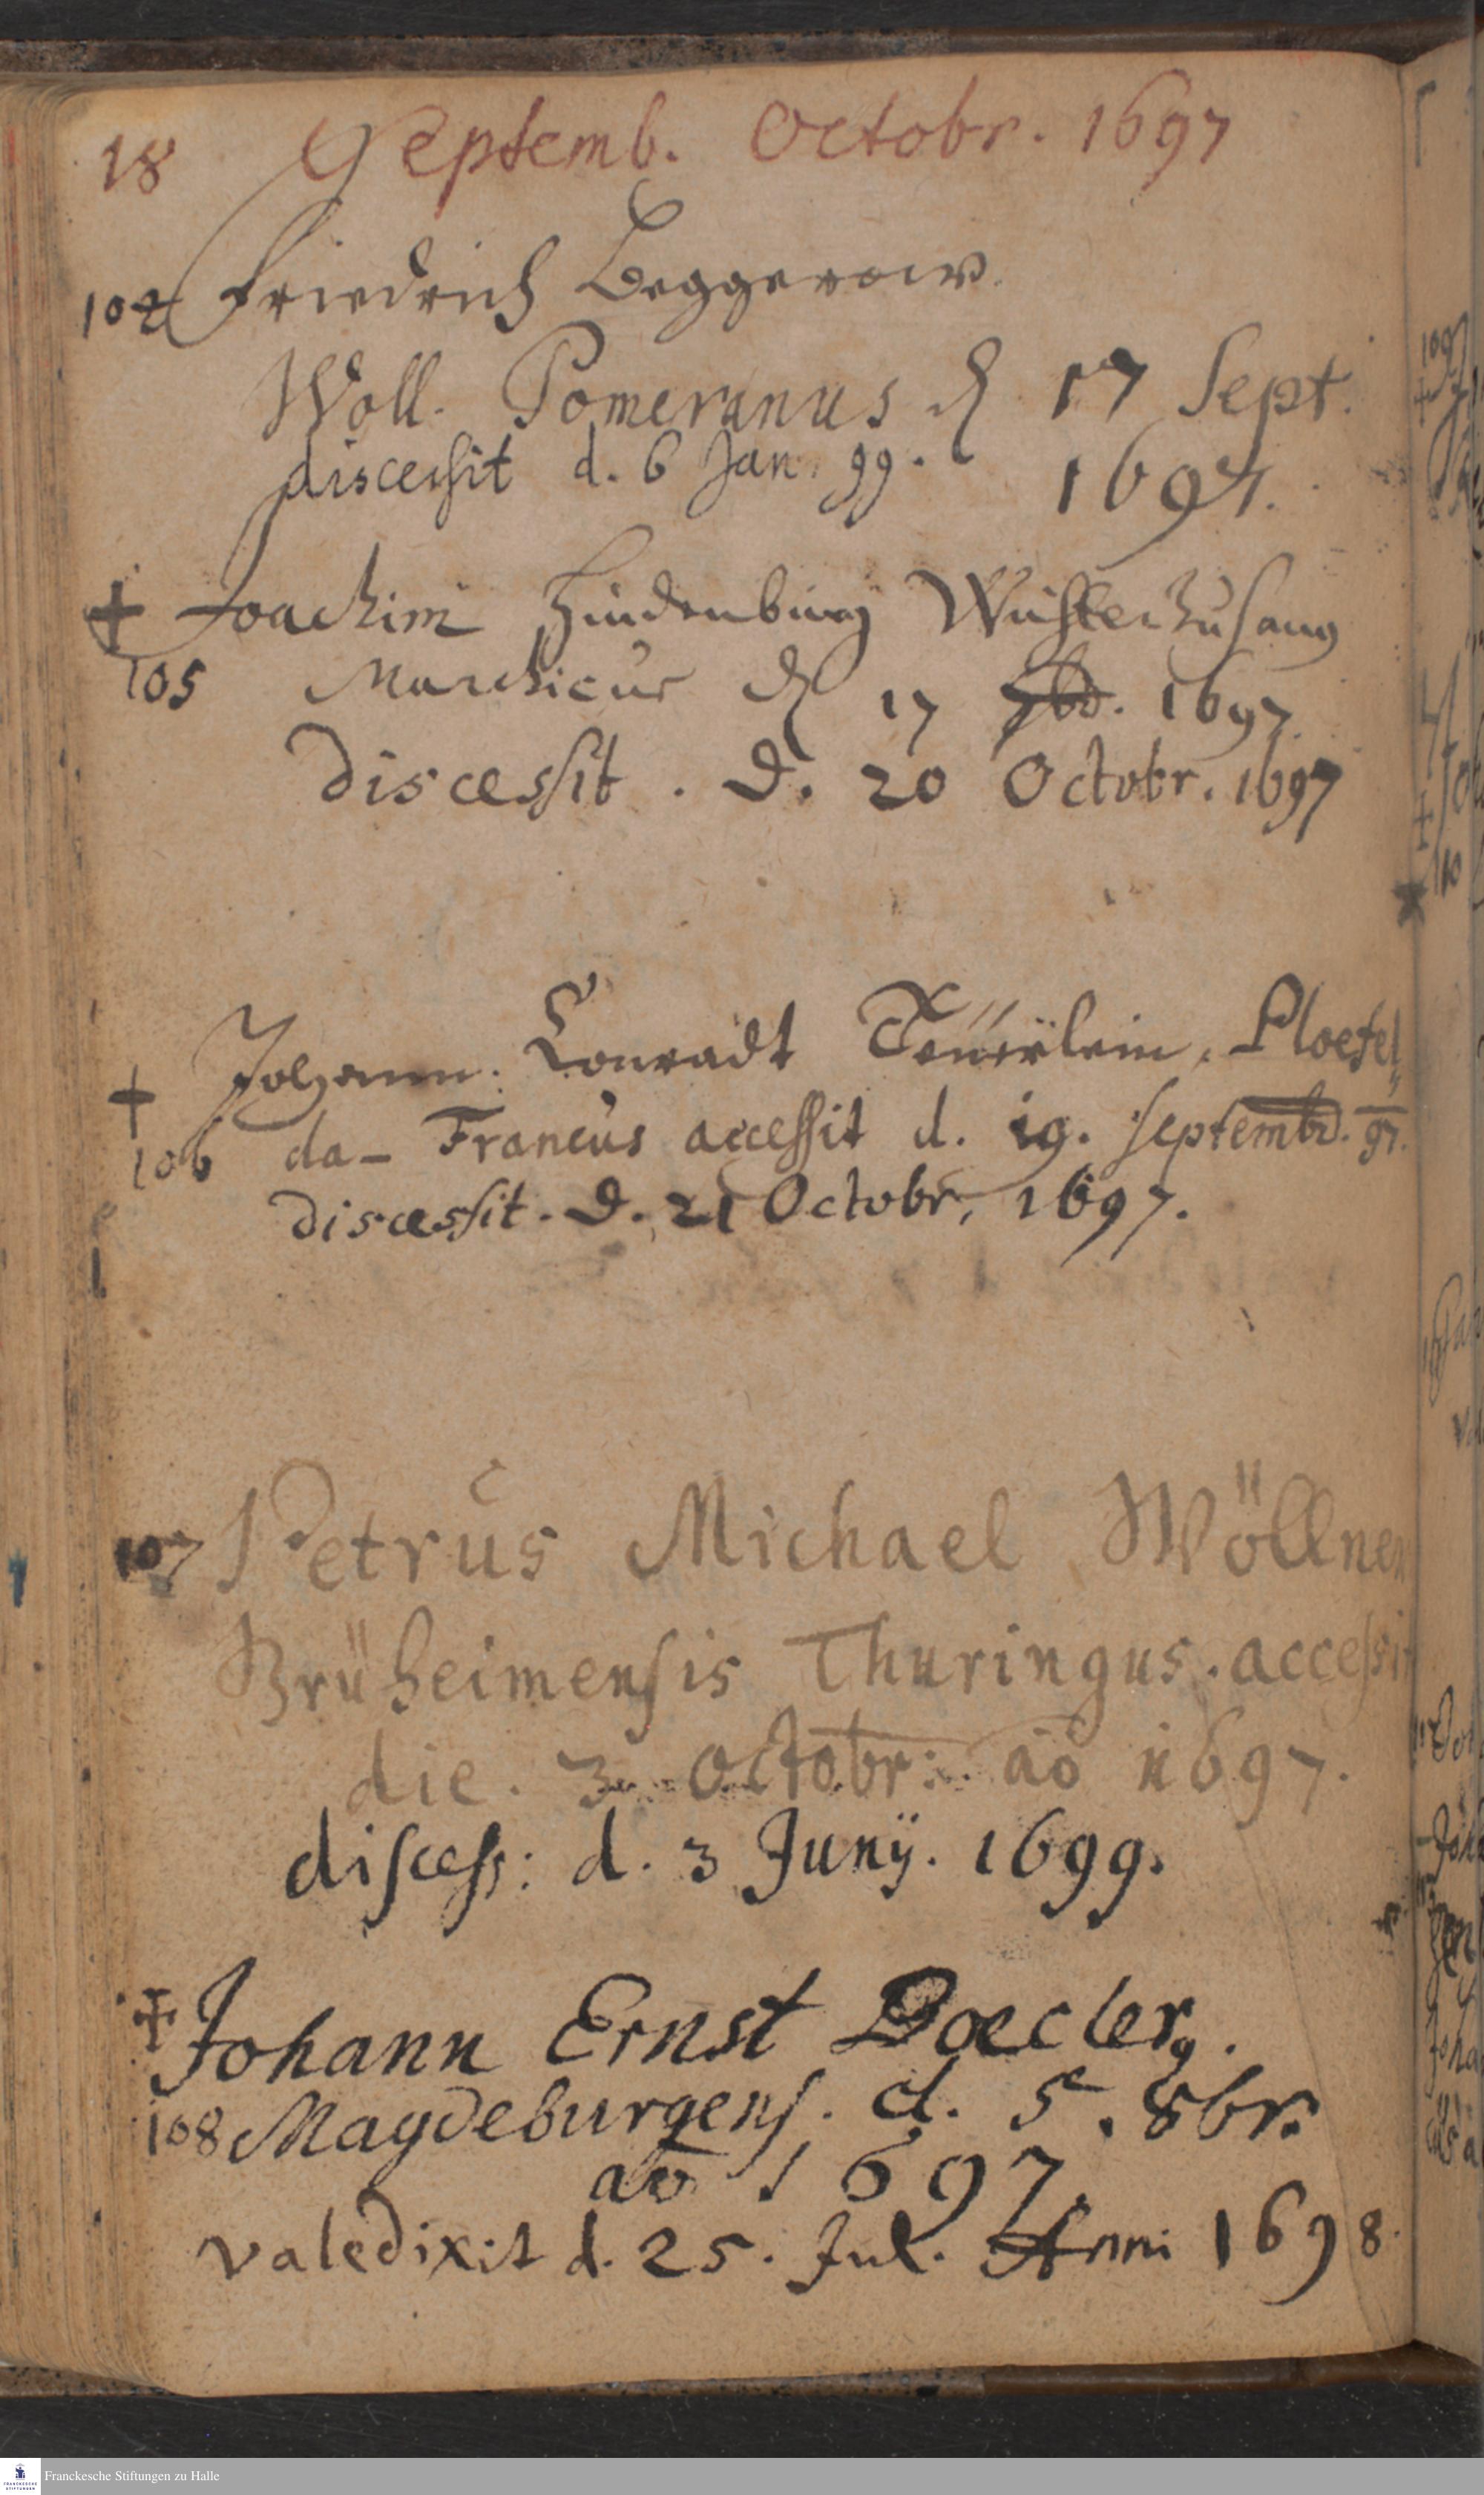 18 Septemb. Octobr. 1697
104 Friedrich Beggerow.
Woll. Pomeranus d 17 Sept.
discessit d. 6 Jan. 99. 1697.
+ Joachim Hindenburg
105 Marchicus d 17 7br. 1697
Discessit. D. 20 Octobr. 1697
+ Johann. Conradt Ploefel
106 da- Francus accessit d. 19. Septembr. 97.
Discessit. D. 21 Octobr. 1697.
107 Petrus Michael Wöllner
Brüheimensis Thuringus. accessit
die. 3. octobr: ao 1697.
discess: d. 3 Junÿ. 1699.
+ Johann Ernst Doecler.
108 Magdeburgens. d. 5. 8br.
ao 1697.
valedixit d. 25. Jul. Anni 1698.
FRANCKESCHE STIFTUNGEN
Franckesche Stiftungen zu Halle